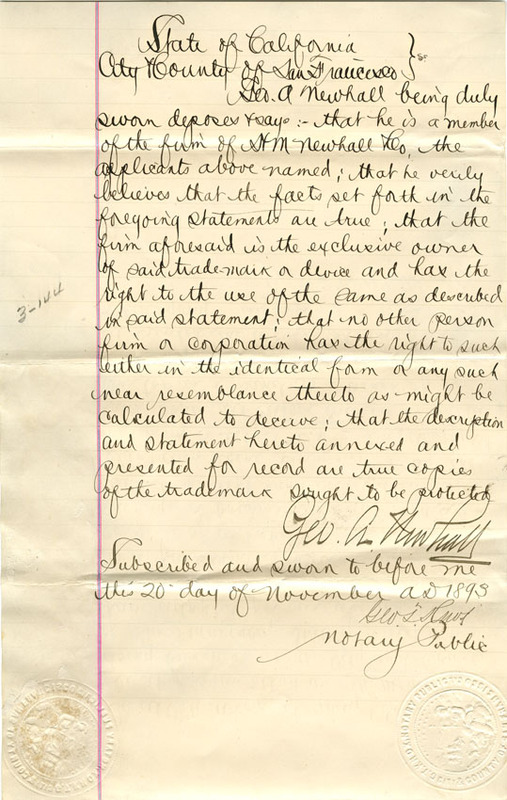 State of California } ss
City & County of San Francisco
Geo. A Newhall being duly
sworn deposes & says :- that he is a member
of the firm of H M Newhall & Co, the
applicants above named; that he verily
believes that the facts set forth in the
foregoing statements are true; that the
firm aforesaid is the exclusive owner
of said trade-mark or device and has the
right to the use of the same as described
in said statement; that no other person
firm or corporation has the right to such
either in the identical form or any such
near resemblance thereto as might be
calculated to deceive; that the description
and statement hereto annexed and
presented for record are true copies
of the trademark sought to be protected
Geo. A. Newhall
Subscribed and sworn to before me
this 20 day of November AD 1893
Geo. T. Knox
Notary Public
3-144